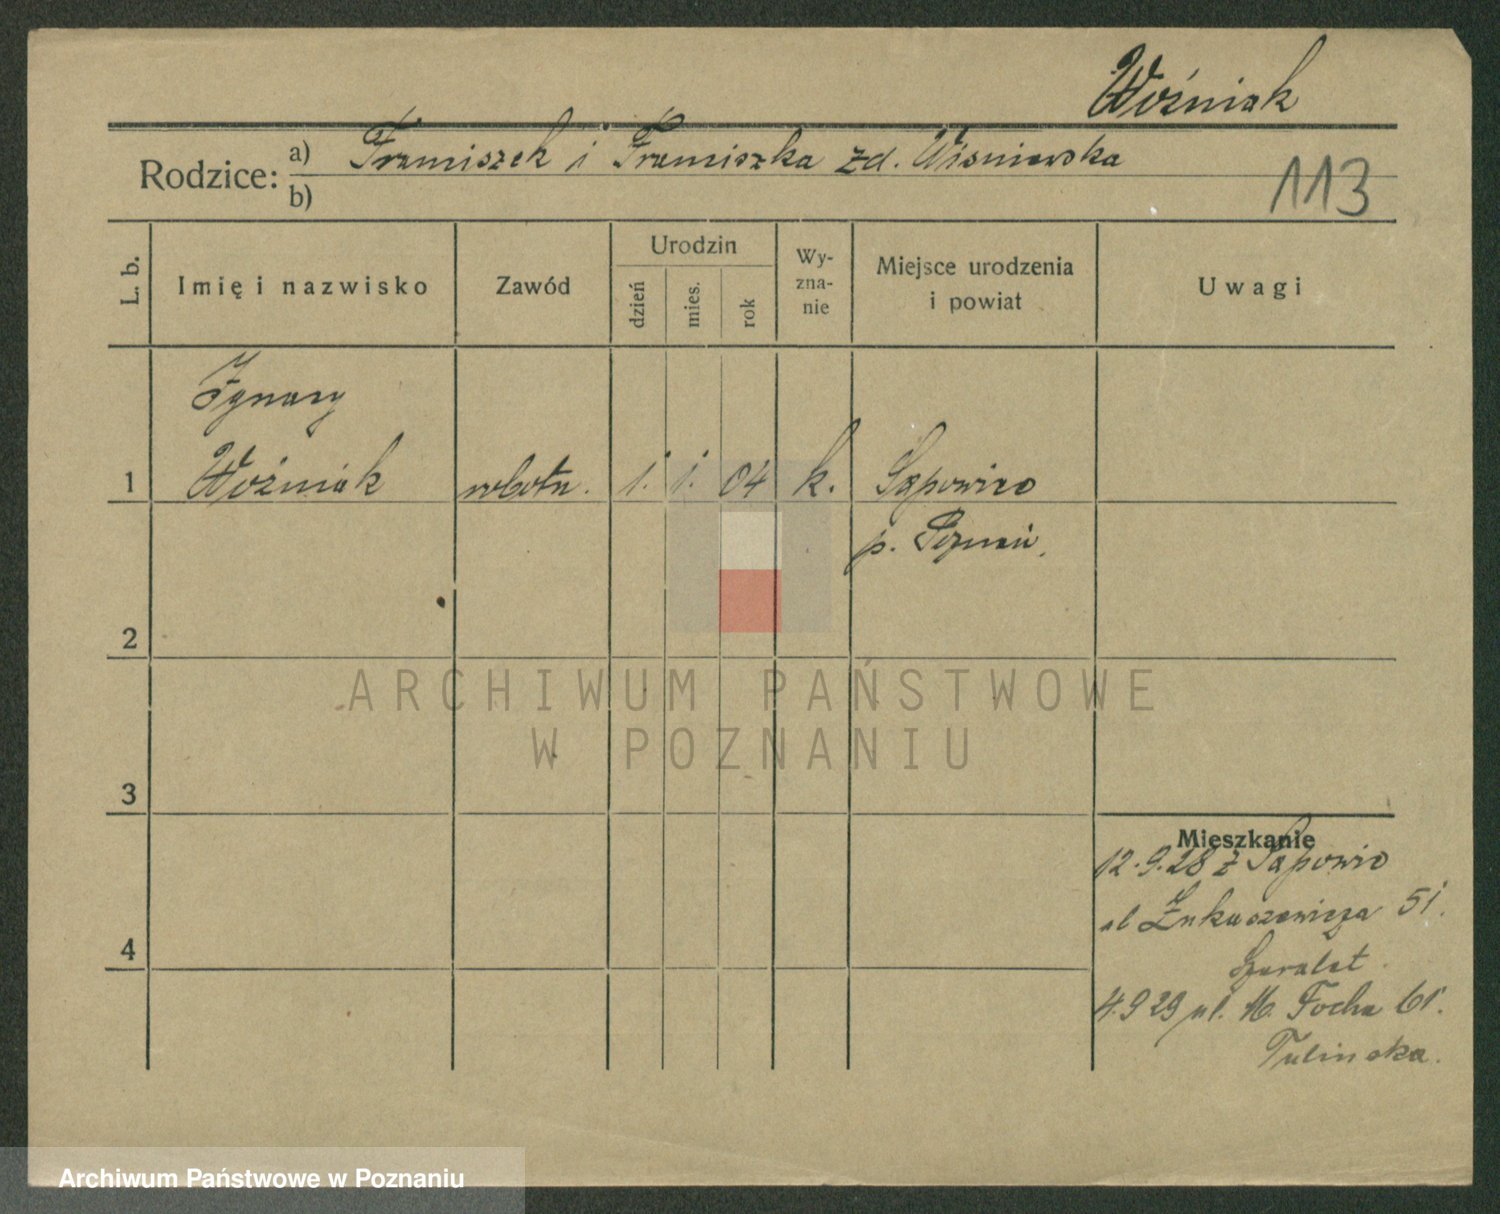 Woźniak
Rodzice: a) Franciszek i Franciszka zd. Wisniewska
b)
113
L. b.
Imię i nazwisko
Zawód
Urodzin
dzień
mies.
rok
Wy-
zna-
nie
Miejsce urodzenia
i powiat
Uwagi
Ignacy
1 Woźniak robotn. 1. 1. 04 k. Sapowice
p. Poznań.
2
ARCHIWUM PAŃSTWOWE
W POZNANIU
3
Mieszkanie
12.9.28 z Sapowic
ul Łukaszewicza 51.
4
4.9 29 ul. M. Focha 61.
Tulinska.
Archiwum Państwowe w Poznaniu